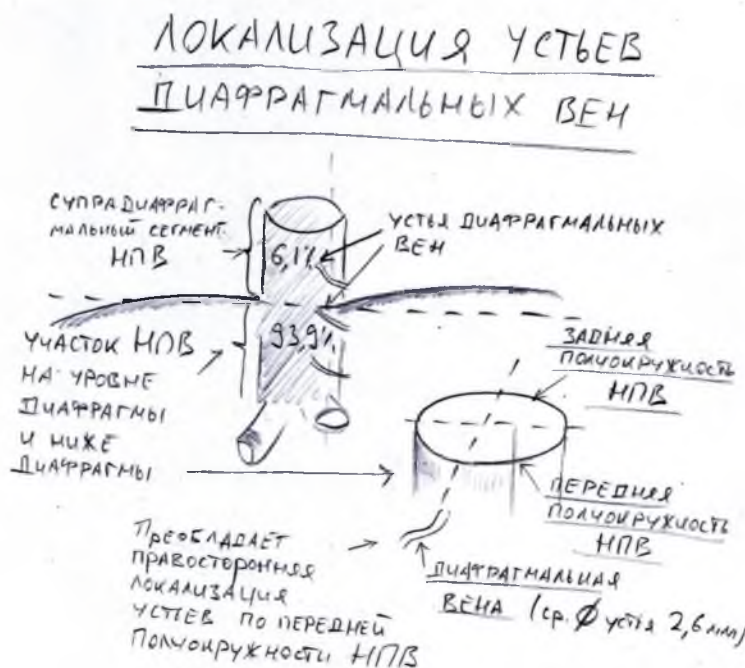 ЛОКАЛИЗАЦИЯ УСТЬЕВ
ДИАФРАГМАЛЬНЫХ ВЕН
СУПРАДИАФРАГ-
МАЛЬНЫЙ СЕГМЕНТ
НПВ
6,1%
УСТЬЯ ДИАФРАГМАЛЬНЫХ
ВЕН
93,9%
УЧАСТОК НПВ
НА УРОВНЕ
ДИАФРАГМЫ
И НИЖЕ
ДИАФРАГМЫ
ЗАДНЯЯ
ПОЛУОКРУЖНОСТЬ
НПВ
ПЕРЕДНЯЯ
ПОЛУОКРУЖНОСТЬ
НПВ
ПРЕОБЛАДАЕТ
ПРАВОСТОРОННЯЯ
ЛОКАЛИЗАЦИЯ
УСТЬЕВ ПО ПЕРЕДНЕЙ
ПОЛУОКРУЖНОСТИ НПВ
ДИАФРАГМАЛЬНАЯ
ВЕНА (ср. Ø устья 2,6 мм)